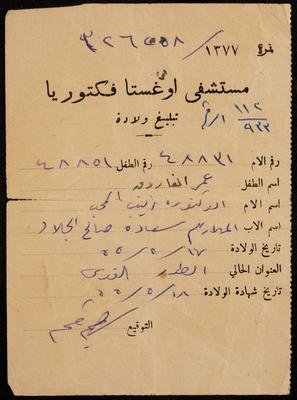 نمرة ١٣٧٧ / ٢٦٠٥٨
مستشفى اوغستا فكتوريا
تبليغ ولادة
١١٢
٩٢٢
رقم الام ٤٨٨٣١ رقم الطفل ٤٨٨٥١
اسم الطفل عمر الفاروق
اسم الام الدكتورة زينب المحب
اسم الاب الملازم سعادة صالح الجلاد
تاريخ الولادة ١٧/٥/٥٥
العنوان الحالي الطور القدس
تاريخ شهادة الولادة ١٨/٥/٥٥
التوقيع